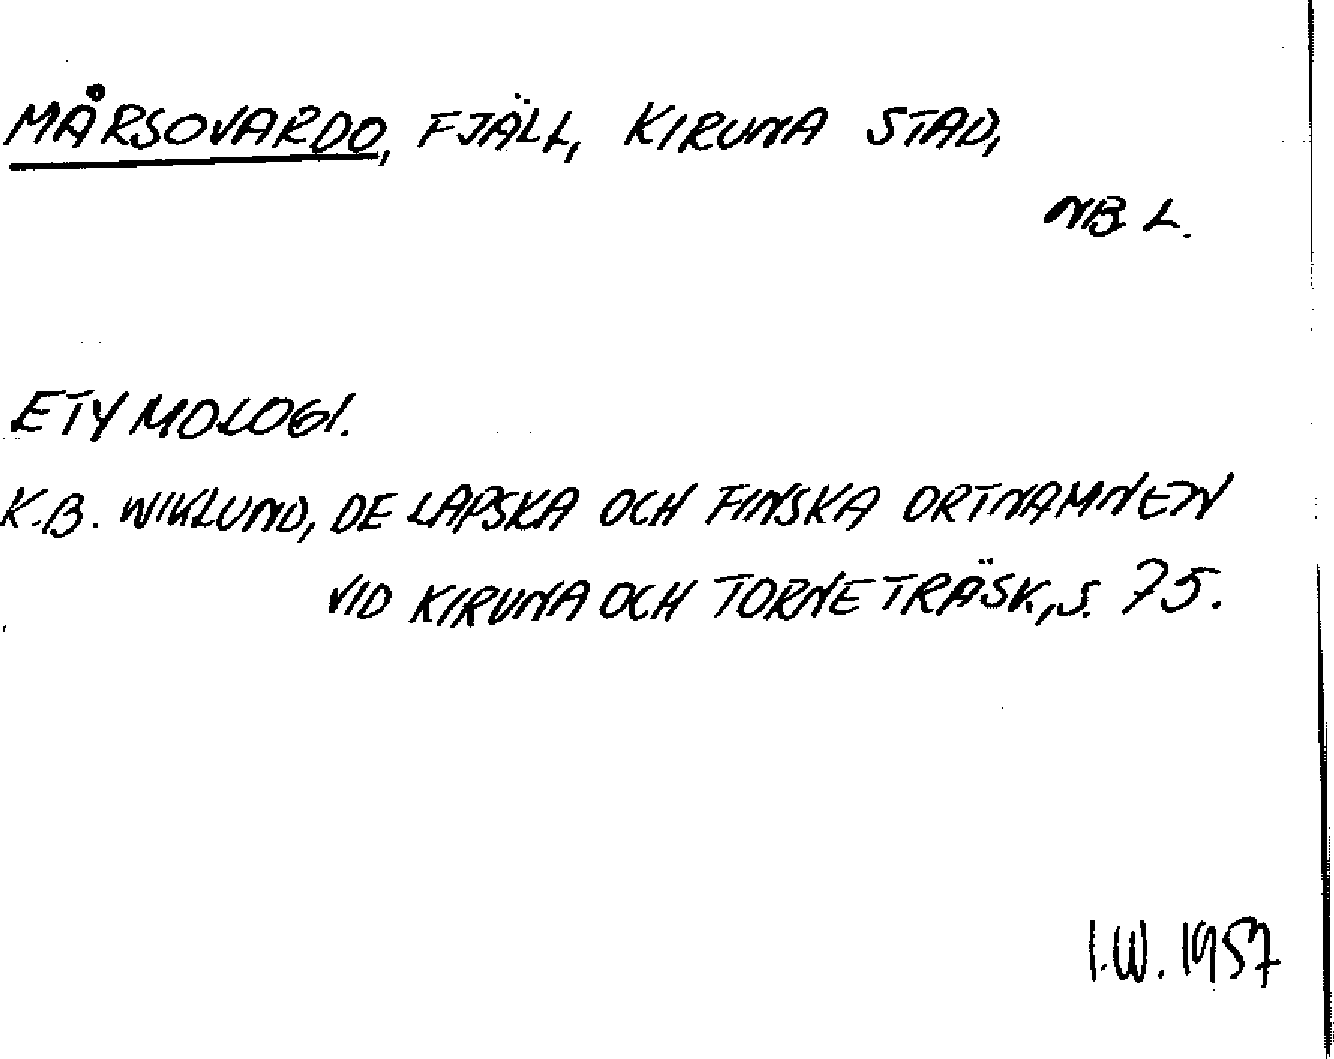 MÅRSOVARDO, FJÄLL, KIRUNA STAD,
NB L.
ETYMOLOGI.
K.B. WIKLUND, DE LAPSKA OCH FINSKA ORTNAMNEN
VID KIRUNA OCH TORNETRÄSK, S. 75.
I.W. 1957